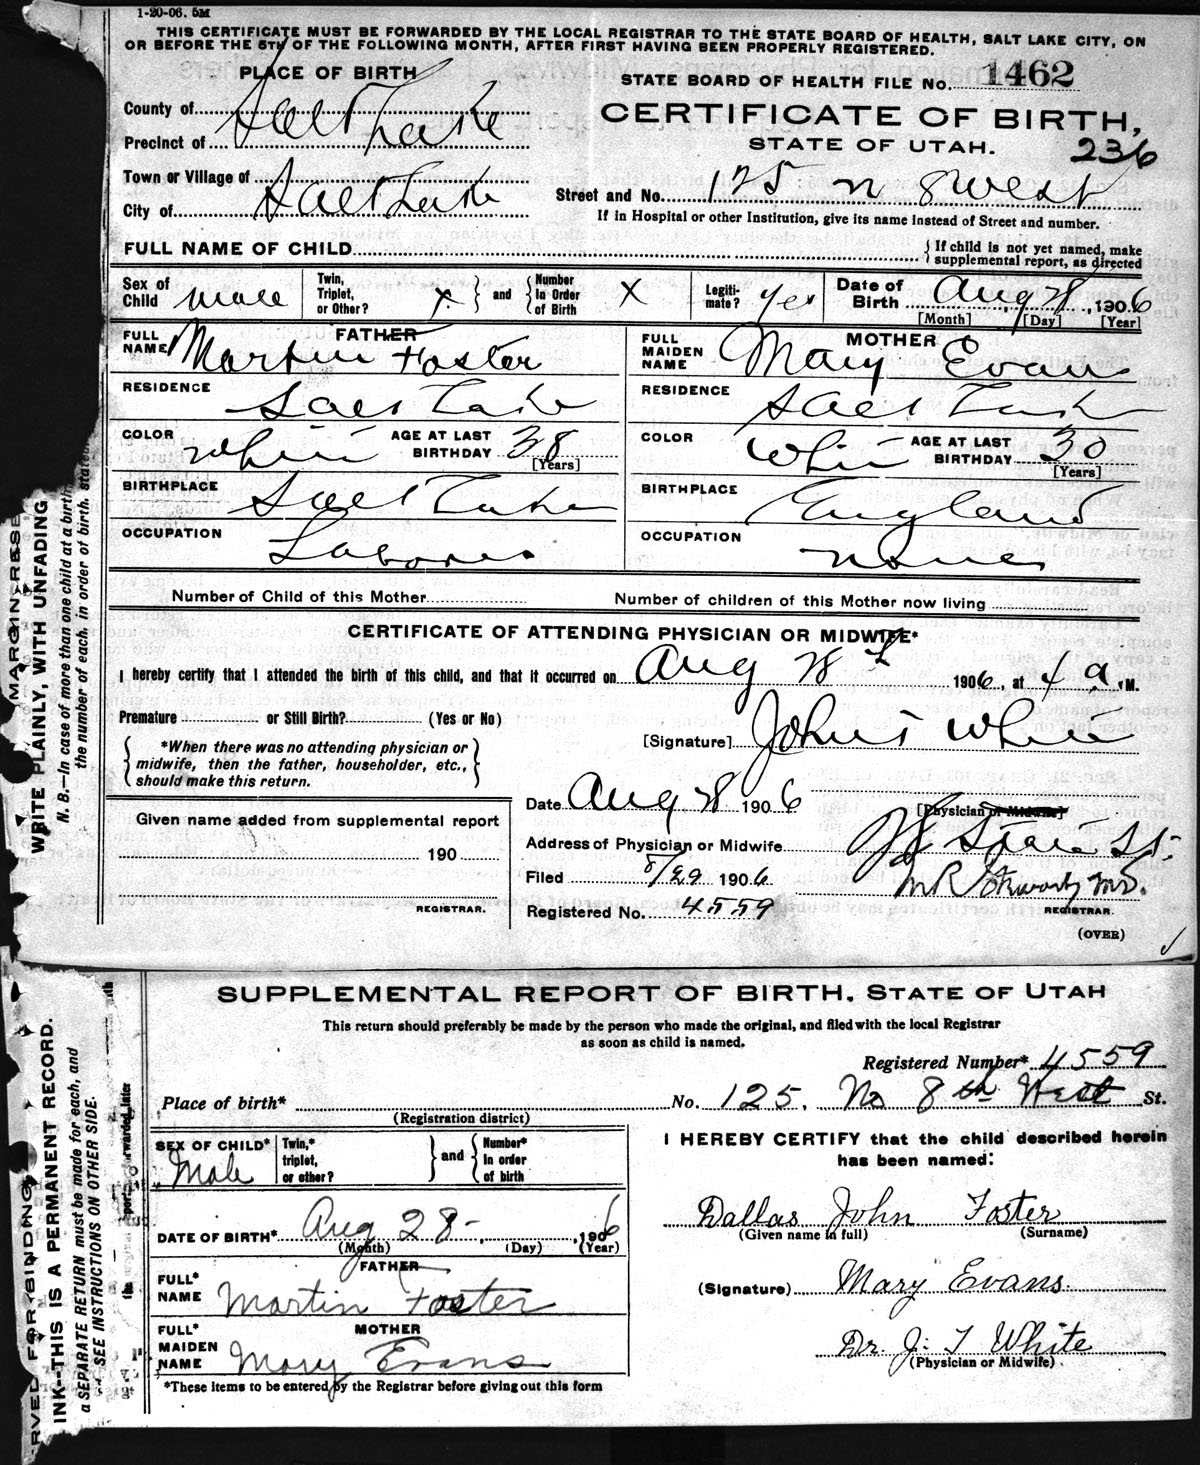 1-20-06. 5M
THIS CERTIFICATE MUST BE FORWARDED BY THE LOCAL REGISTRAR TO THE STATE BOARD OF HEALTH, SALT LAKE CITY, ON
OR BEFORE THE 5TH OF THE FOLLOWING MONTH, AFTER FIRST HAVING BEEN PROPERLY REGISTERED.
PLACE OF BIRTH
STATE BOARD OF HEALTH FILE No. 1462
County of Salt Lake
CERTIFICATE OF BIRTH,
Precinct of
STATE OF UTAH.
236
Town or Village of
Street and No. 125 n 8 West
City of Salt Lake
If in Hospital or other Institution, give its name instead of Street and number.
FULL NAME OF CHILD
If child is not yet named, make
supplemental report, as directed
Sex of Child male
Twin, Triplet, or Other? X and Number In Order of Birth X
Legiti-mate? yes
Date of Birth Aug 28, 1906
[Month] [Day] [Year]
FATHER
FULL NAME Martin Foster
RESIDENCE Salt Lake
COLOR White AGE AT LAST BIRTHDAY 38
[Years]
BIRTHPLACE Salt Lake
OCCUPATION Laborer
MOTHER
FULL MAIDEN NAME Mary Evans
RESIDENCE Salt Lake
COLOR White AGE AT LAST BIRTHDAY 30
[Years]
BIRTHPLACE England
OCCUPATION None
Number of Child of this Mother
Number of children of this Mother now living
CERTIFICATE OF ATTENDING PHYSICIAN OR MIDWIFE*
I hereby certify that I attended the birth of this child, and that it occurred on Aug 28th 1906, at 4 a. M.
Premature or Still Birth? (Yes or No)
*When there was no attending physician or
midwife, then the father, householder, etc.,
should make this return.
[Signature] John T White
[Physician or Midwife]
Date Aug 28 1906
Given name added from supplemental report
190
REGISTRAR.
Address of Physician or Midwife
Filed 8/29 1906
Registered No. 4559
REGISTRAR.
(OVER)
MARGIN RESERVED FOR BINDING
WRITE PLAINLY, WITH UNFADING INK--THIS IS A PERMANENT RECORD.
N. B.—In case of more than one child at a birth, a SEPARATE RETURN must be made for each, and
the number of each, in order of birth, stated. SEE INSTRUCTIONS ON OTHER SIDE.
SUPPLEMENTAL REPORT OF BIRTH, STATE OF UTAH
This return should preferably be made by the person who made the original, and filed with the local Registrar
as soon as child is named.
Registered Number* 4559
Place of birth* No. 125. No 8th West St.
(Registration district)
SEX OF CHILD* Male
Twin,* triplet, or other? and Number* In order of birth
DATE OF BIRTH* Aug 28-, 1906
(Month) (Day) (Year)
FATHER
FULL* NAME Martin Foster
MOTHER
FULL* MAIDEN NAME Mary Evans
*These items to be entered by the Registrar before giving out this form
I HEREBY CERTIFY that the child described herein
has been named:
Dallas John Foster
(Given name in full) (Surname)
(Signature) Mary Evans.
Dr. J. T White
(Physician or Midwife)